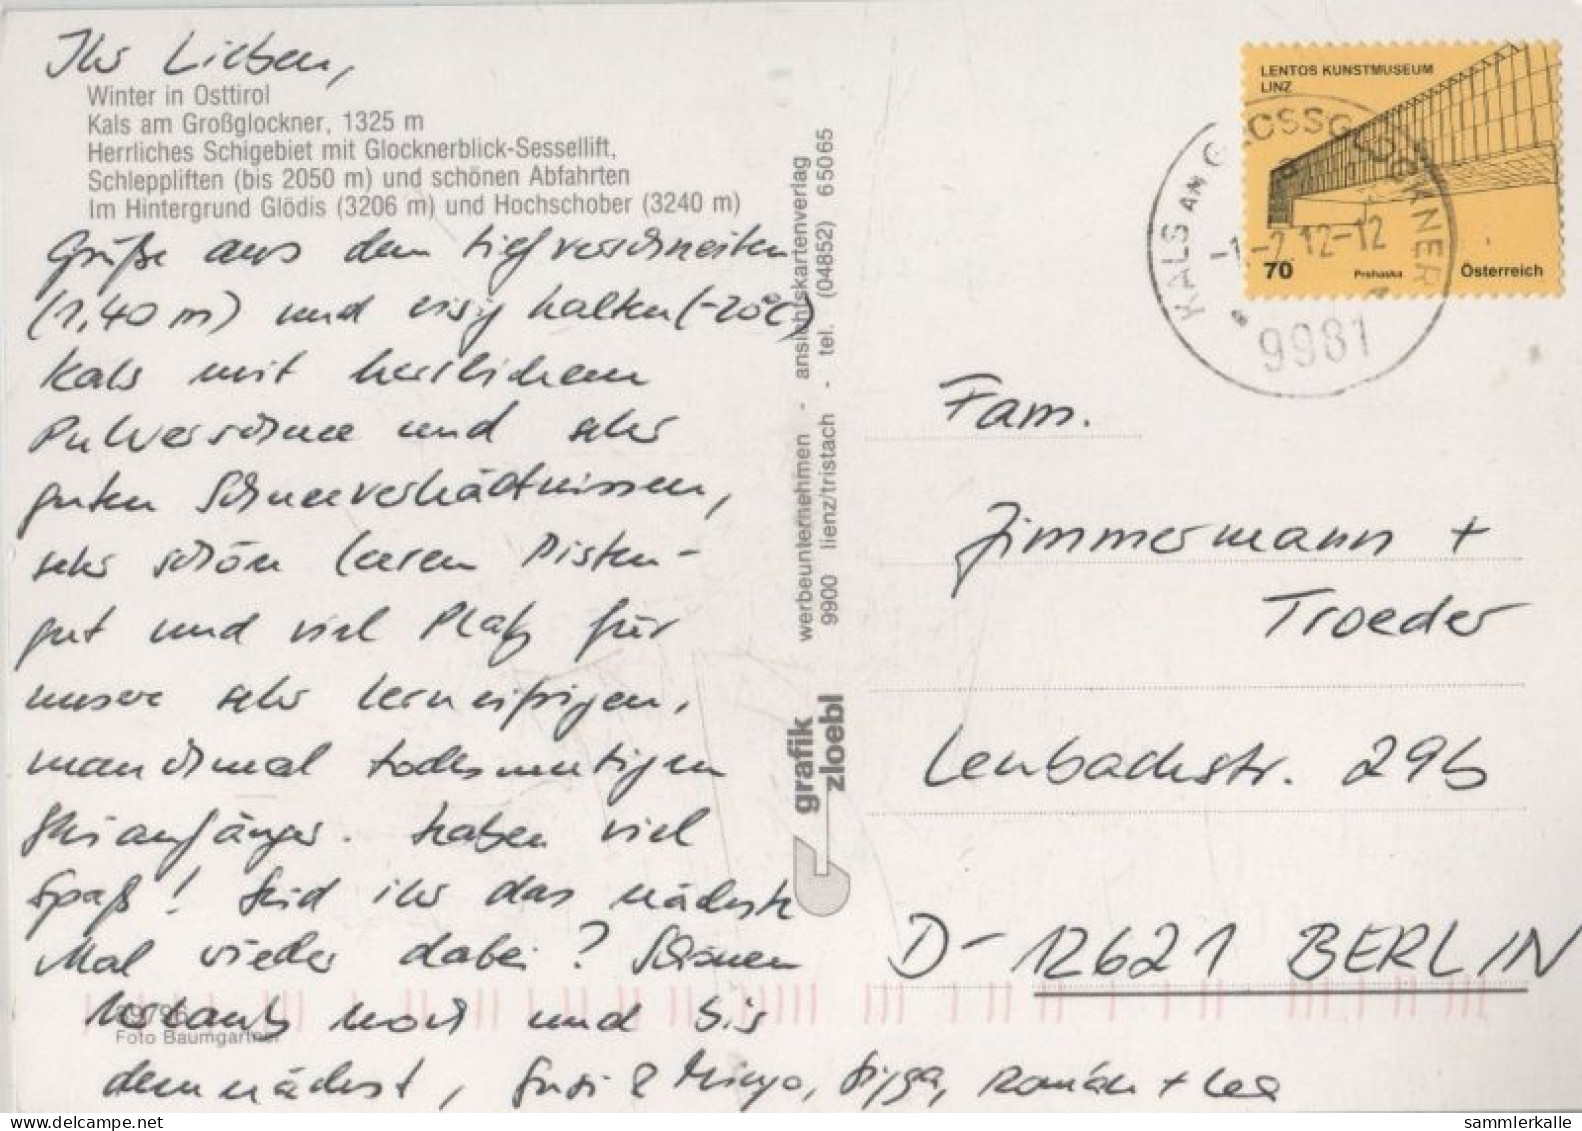 Ihr Lieben,
Winter in Osttirol
Kals am Großglockner, 1325 m
Herrliches Schigebiet mit Glocknerblick-Sessellift,
Schleppliften (bis 2050 m) und schönen Abfahrten
Im Hintergrund Glödis (3206 m) und Hochschober (3240 m)
Grüße aus dem tiefverschneiten
(1,40 m) und eisig kalten (-20°C)
Kals mit herrlichem
Pulverschnee und sehr
guten Schneeverhältnissen,
sehr schön leeren Pisten-
gut und viel Platz für
unsere sehr lerneifrigen,
manchmal todesmutigen
Skianfänger. Haben viel
Spaß! Seid ihr das nächste
Mal wieder dabei? Schönen
Urlaub noch und bis
demnächst, Susi & Miryo, Romăn + Lea
Foto Baumgartner
werbeunternehmen - ansichtskartenverlag
9900 lienz/tristach - tel. (04852) 65065
grafik
zloebl
LENTOS KUNSTMUSEUM
LINZ
70 Prohaska Österreich
KALS AM GROSSGLOCKNER
-1.-2.12-12
9981
Fam.
Zimmermann +
Troeder
Lenbachstr. 29b
D-12621 BERLIN
sammlerkalle